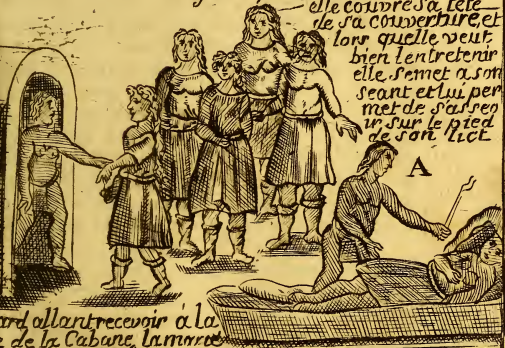 elle couvre sa tête
de sa couverture, et
lors quelle veut
bien lentretenir
elle semet a son
seant et lui per
met de s'asseo
ir sur le pied
de son lict
A
ard allant recevoir à la
e de la Cabane, la marie